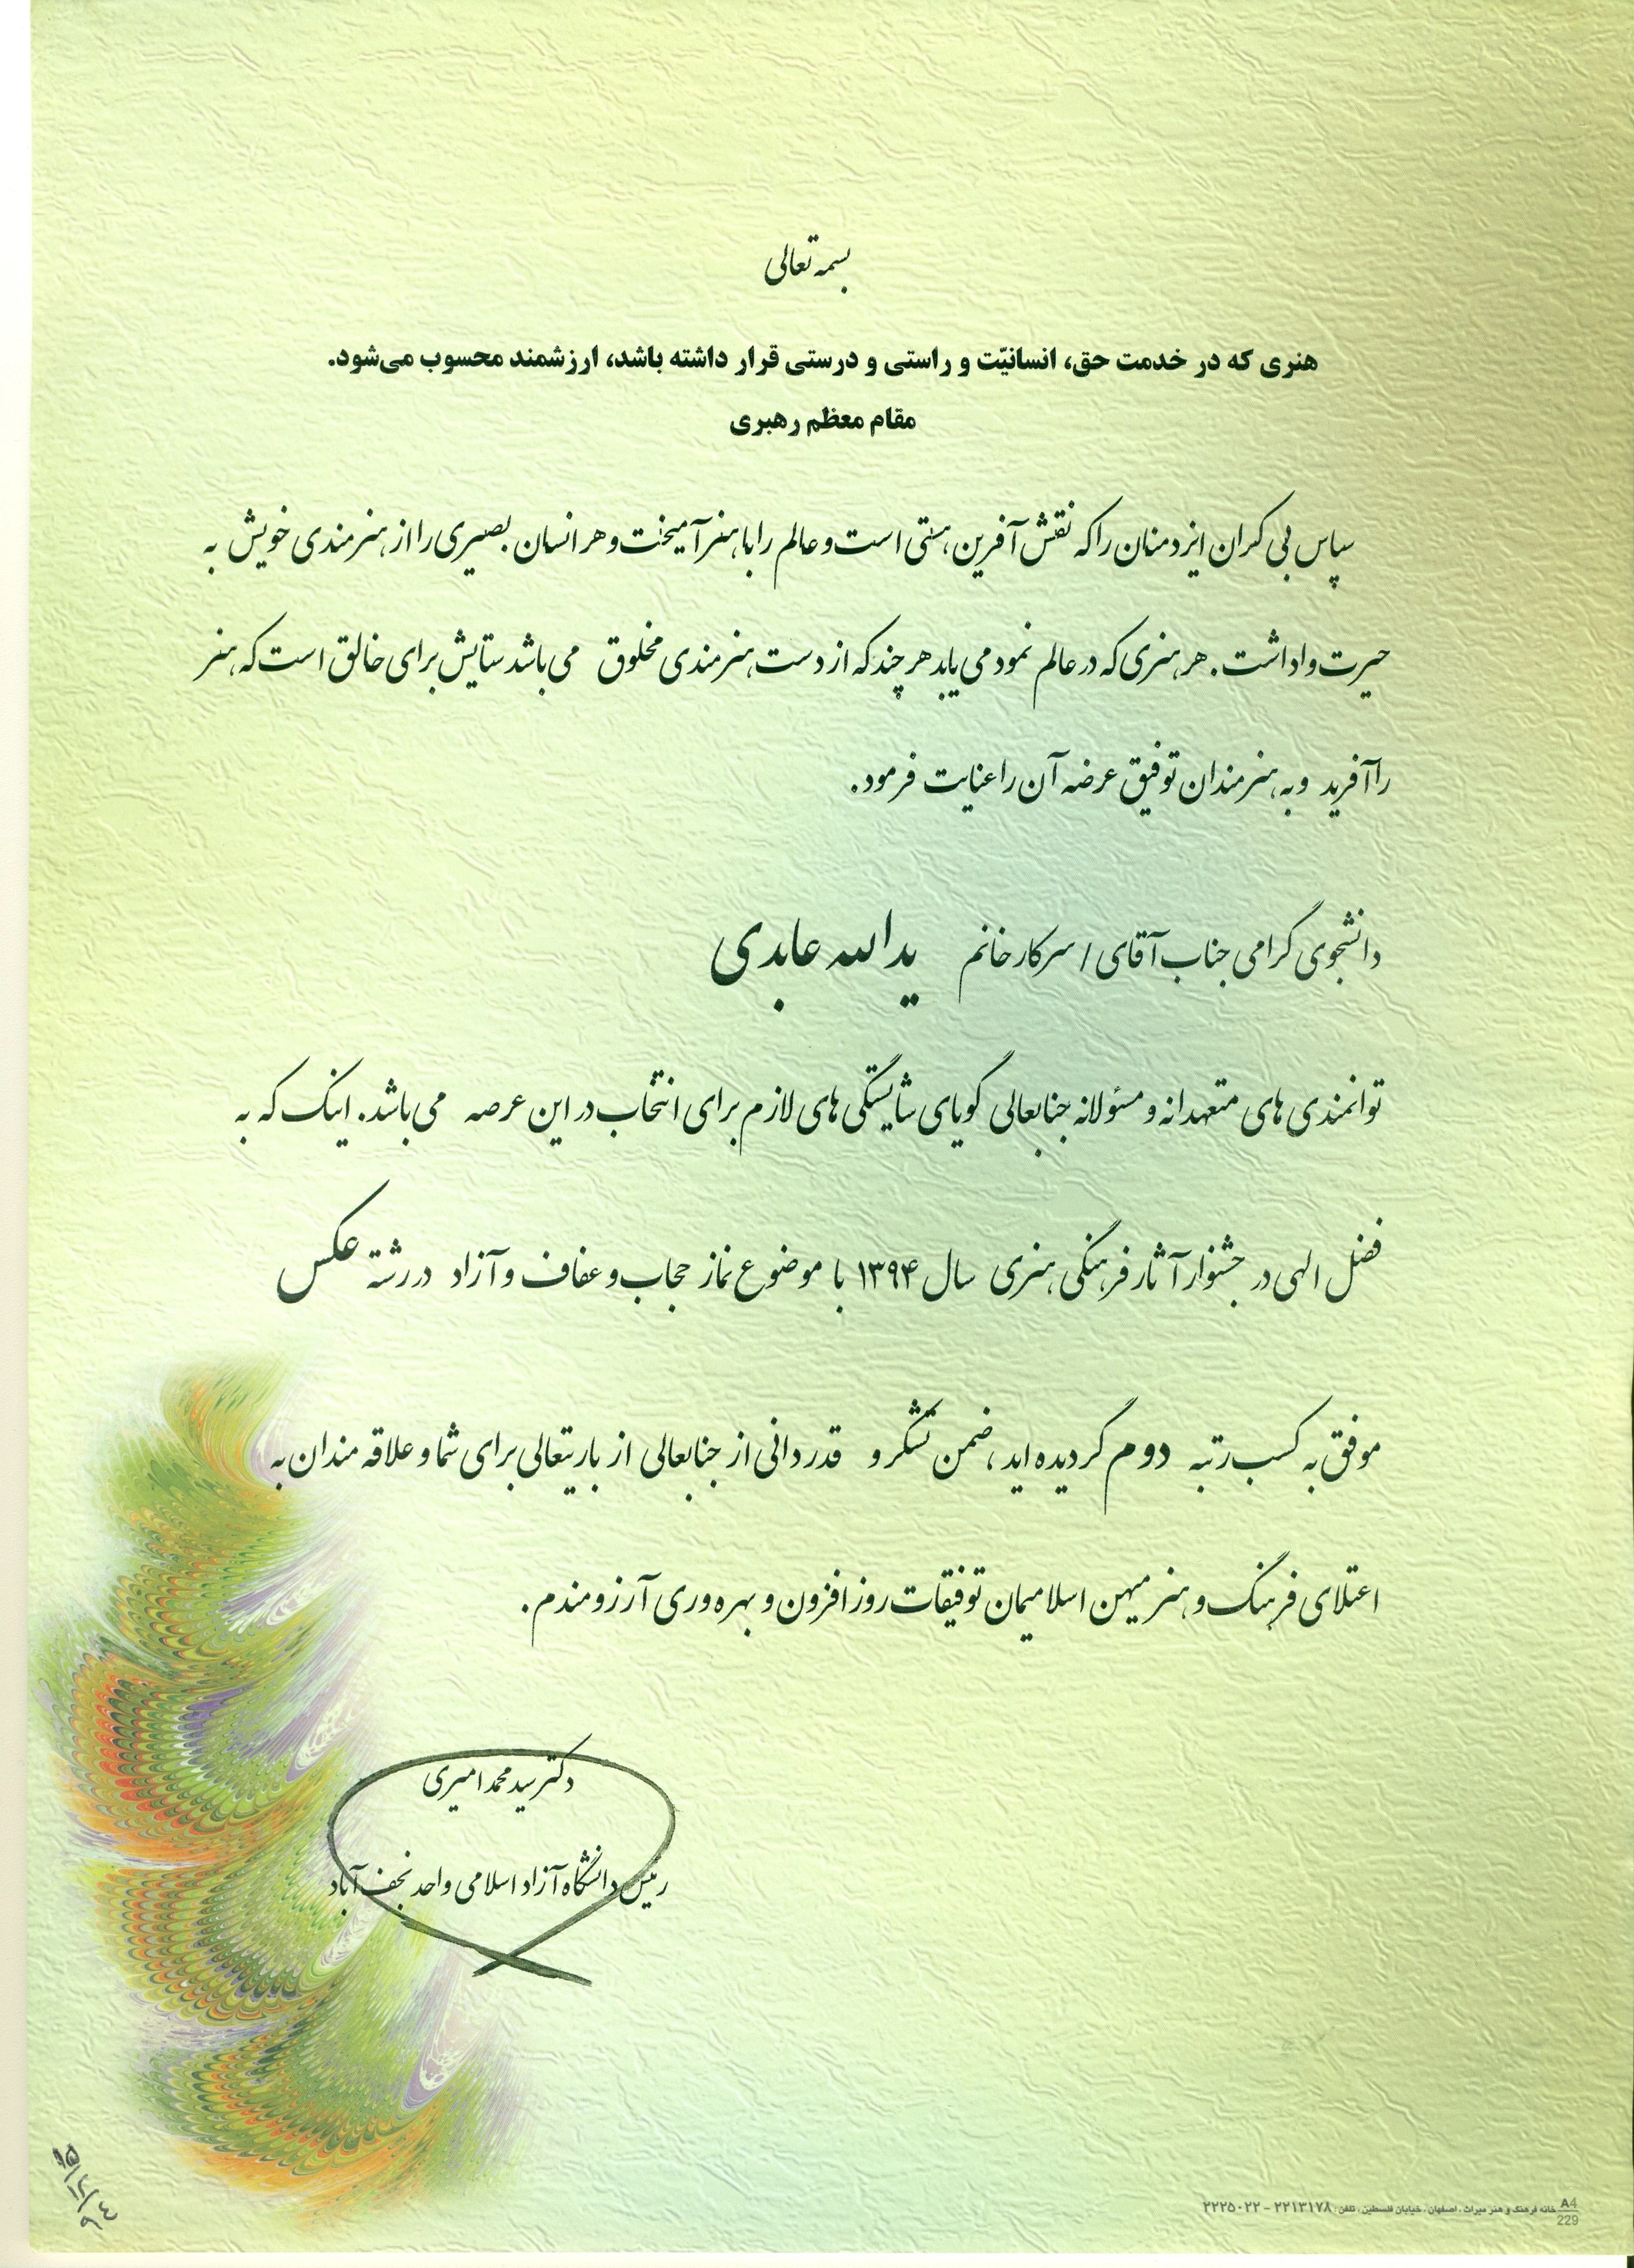 بسمه تعالی
هنری که در خدمت حق، انسانیّت و راستی و درستی قرار داشته باشد، ارزشمند محسوب می‌شود.
مقام معظم رهبری
سپاس بی کران ایزد منان را که نقش آفرین هستی است و عالم را با هنر آمیخت و هر انسان بصیری را از هنرمندی خویش به
حیرت واداشت. هر هنری که در عالم نمود می یابد هر چند که از دست هنرمندی مخلوق می باشد ستایش برای خالق است که هنر
را آفرید و به هنرمندان توفیق عرضه آن را عنایت فرمود.
دانشجوی گرامی جناب آقای / سرکار خانم یدالله عابدی
توانمندی های متعهدانه و مسئولانه جنابعالی گویای شایستگی های لازم برای انتخاب در این عرصه می باشد. اینک که به
فضل الهی در جشنواره آثار فرهنگی هنری سال ۱۳۹۴ با موضوع نماز حجاب و عفاف و آزاد در رشته عکس
موفق به کسب رتبه دوم گردیده اید، ضمن تشکر و قدردانی از جنابعالی از باریتعالی برای شما و علاقه مندان به
اعتلای فرهنگ و هنر میهن اسلامیمان توفیقات روزافزون و بهره وری آرزومندم.
دکتر سید محمد امیری
رئیس دانشگاه آزاد اسلامی واحد نجف آباد
A4 خانه فرهنگ و هنر میراث، اصفهان، خیابان فلسطین، تلفن: ۲۲۱۳۱۷۸ - ۲۲۲۵۰۲۲
229